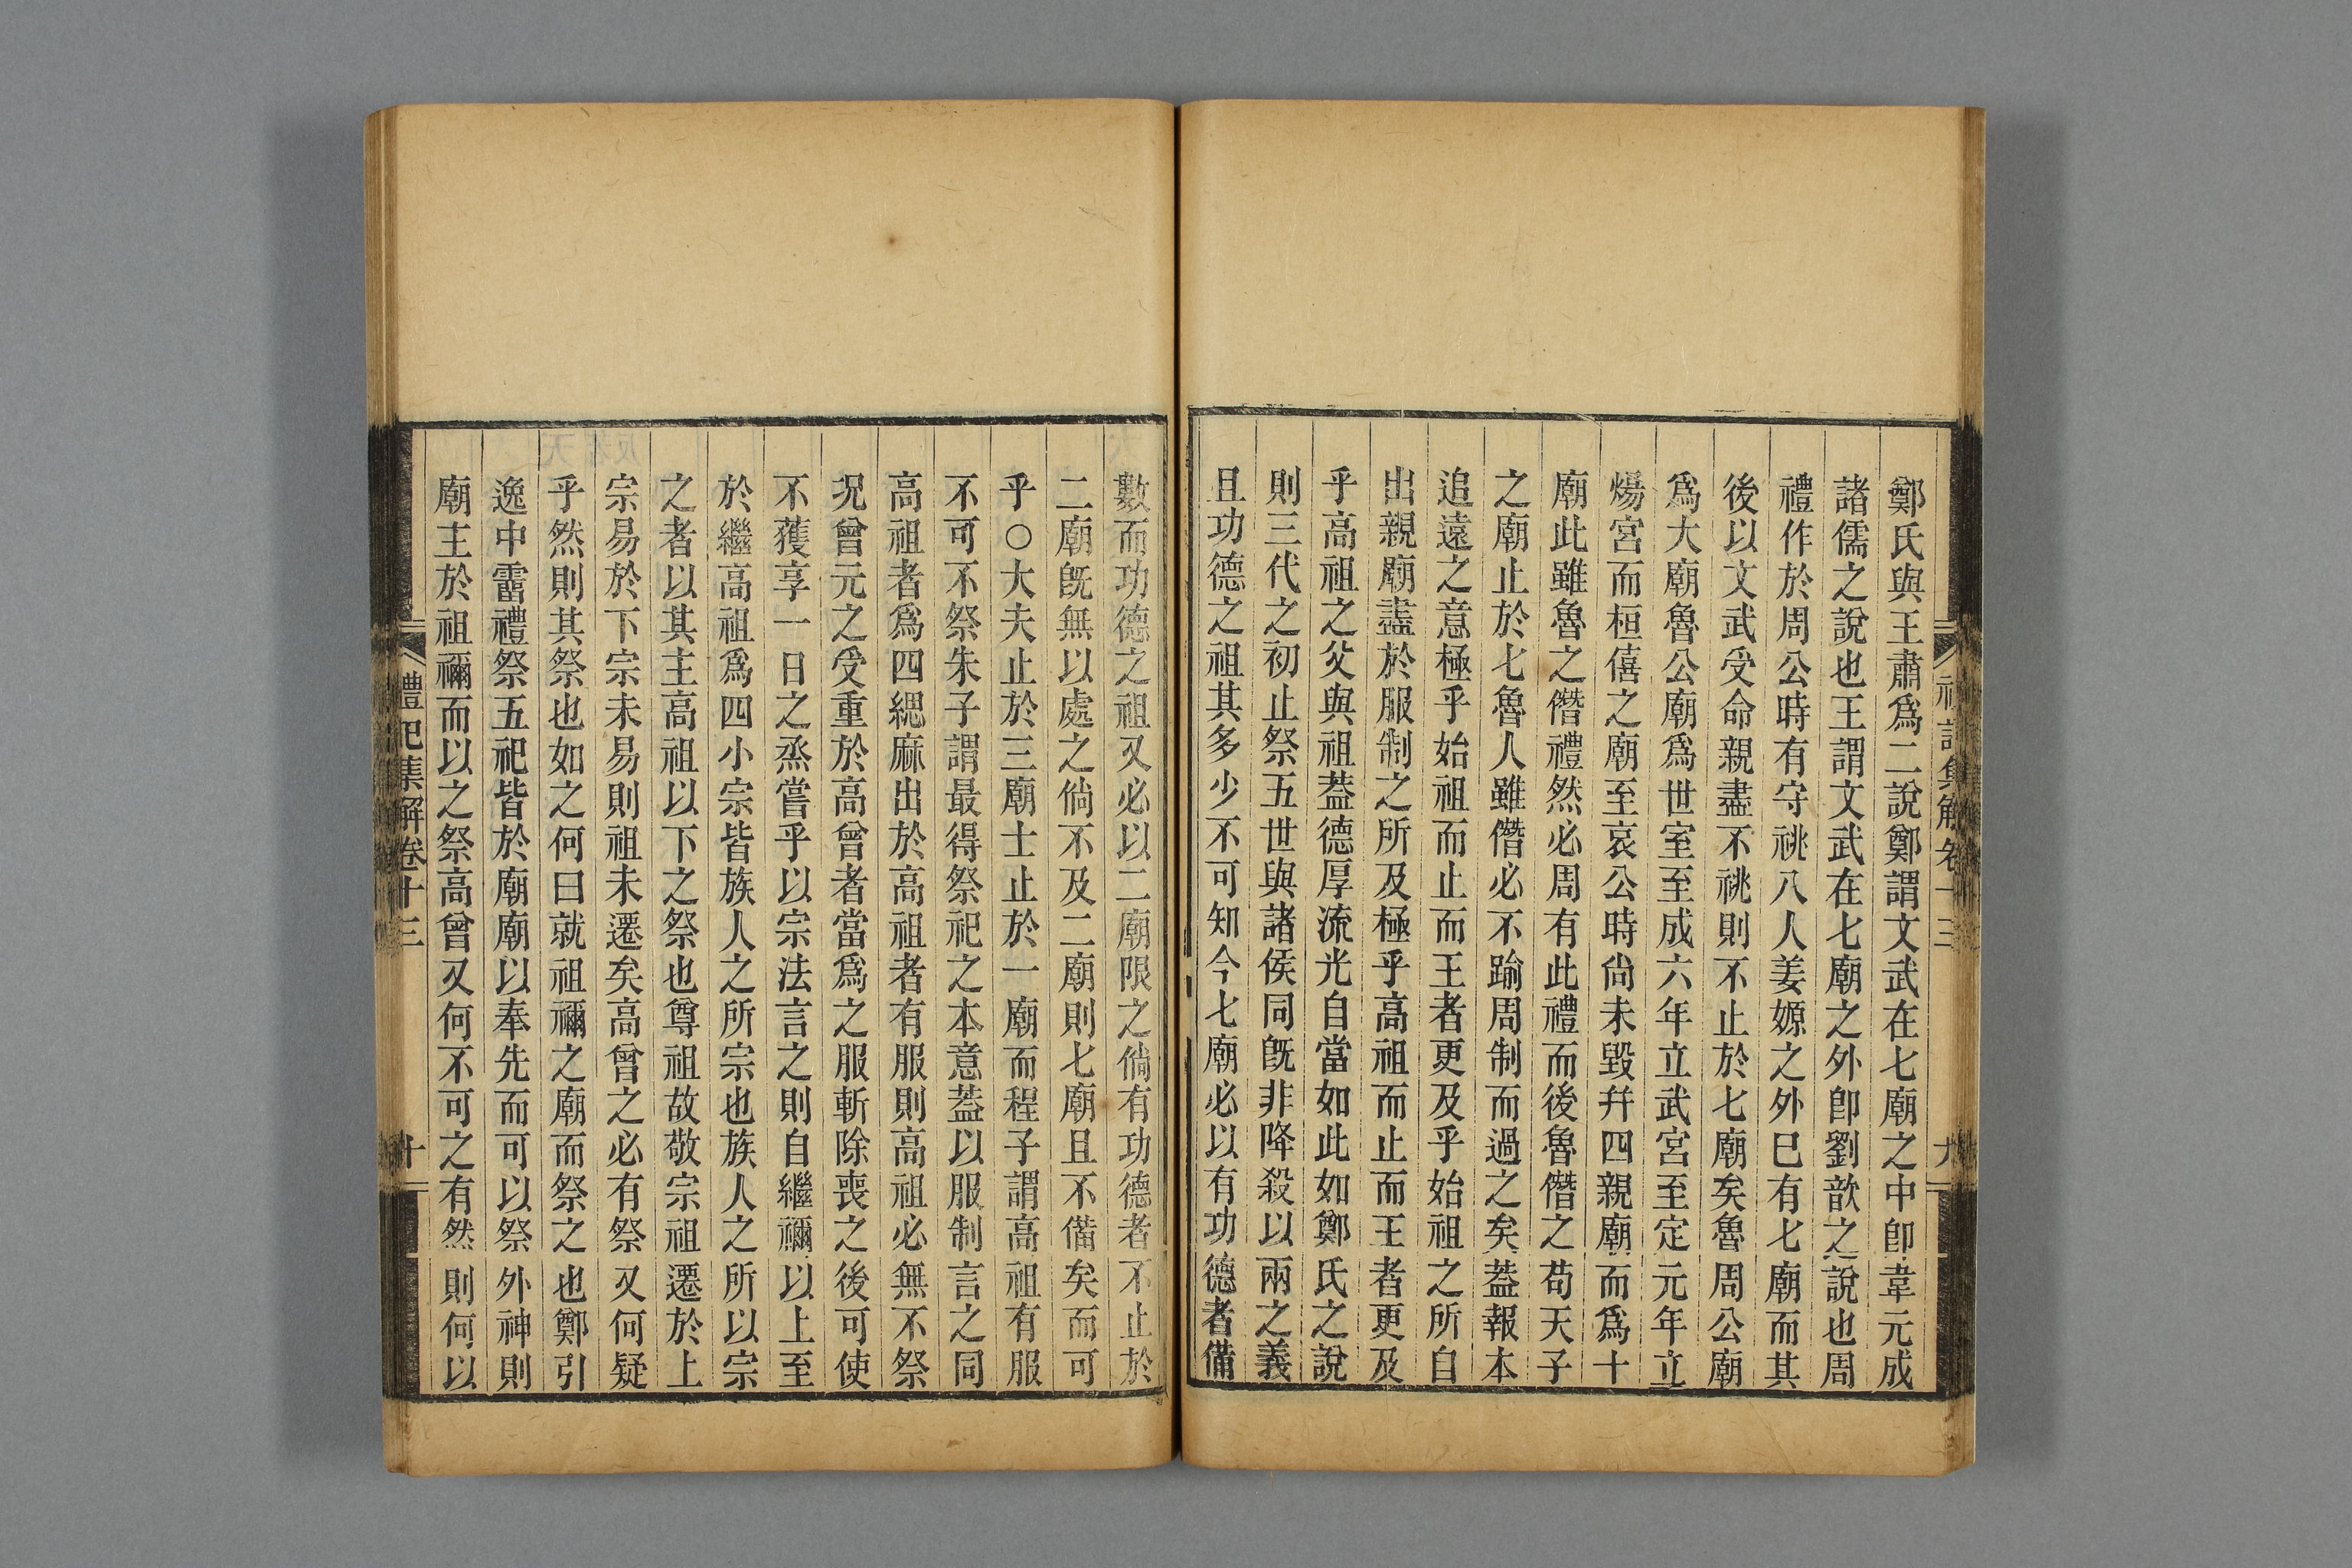 禮記集解卷十三
九
鄭氏與王肅爲二說鄭謂文武在七廟之中卽韋元成
諸儒之說也王謂文武在七廟之外卽劉歆之說也周
禮作於周公時有守祧八人姜嫄之外巳有七廟而其
後以文武受命親盡不祧則不止於七廟矣魯周公廟
爲大廟魯公廟爲世室至成六年立武宮至定元年立
煬宮而桓僖之廟至哀公時尙未毀幷四親廟而爲十
廟此雖魯之僭禮然必周有此禮而後魯僭之苟天子
之廟止於七魯人雖僭必不踰周制而過之矣蓋報本
追遠之意極乎始祖而止而王者更及乎始祖之所自
出親廟盡於服制之所及極乎高祖而止而王者更及
乎高祖之父與祖蓋德厚流光自當如此如鄭氏之說
則三代之初止祭五世與諸侯同旣非降殺以兩之義
且功德之祖其多少不可知今七廟必以有功德者備
數而功德之祖又必以二廟限之倘有功德者不止於
二廟旣無以處之倘不及二廟則七廟且不備矣而可
乎○大夫止於三廟士止於一廟而程子謂高祖有服
不可不祭朱子謂最得祭祀之本意蓋以服制言之同
高祖者爲四緦麻出於高祖者有服則高祖必無不祭
況曾元之受重於高曾者當爲之服斬除喪之後可使
不獲享一日之烝嘗乎以宗法言之則自繼禰以上至
於繼高祖爲四小宗皆族人之所宗也族人之所以宗
之者以其主高祖以下之祭也尊祖故敬宗祖遷於上
宗易於下宗未易則祖未遷矣高曾之必有祭又何疑
乎然則其祭也如之何曰就祖禰之廟而祭之也鄭引
逸中霤禮祭五祀皆於廟廟以奉先而可以祭外神則
廟主於祖禰而以之祭高曾又何不可之有然則何以
禮記集解卷十三
十